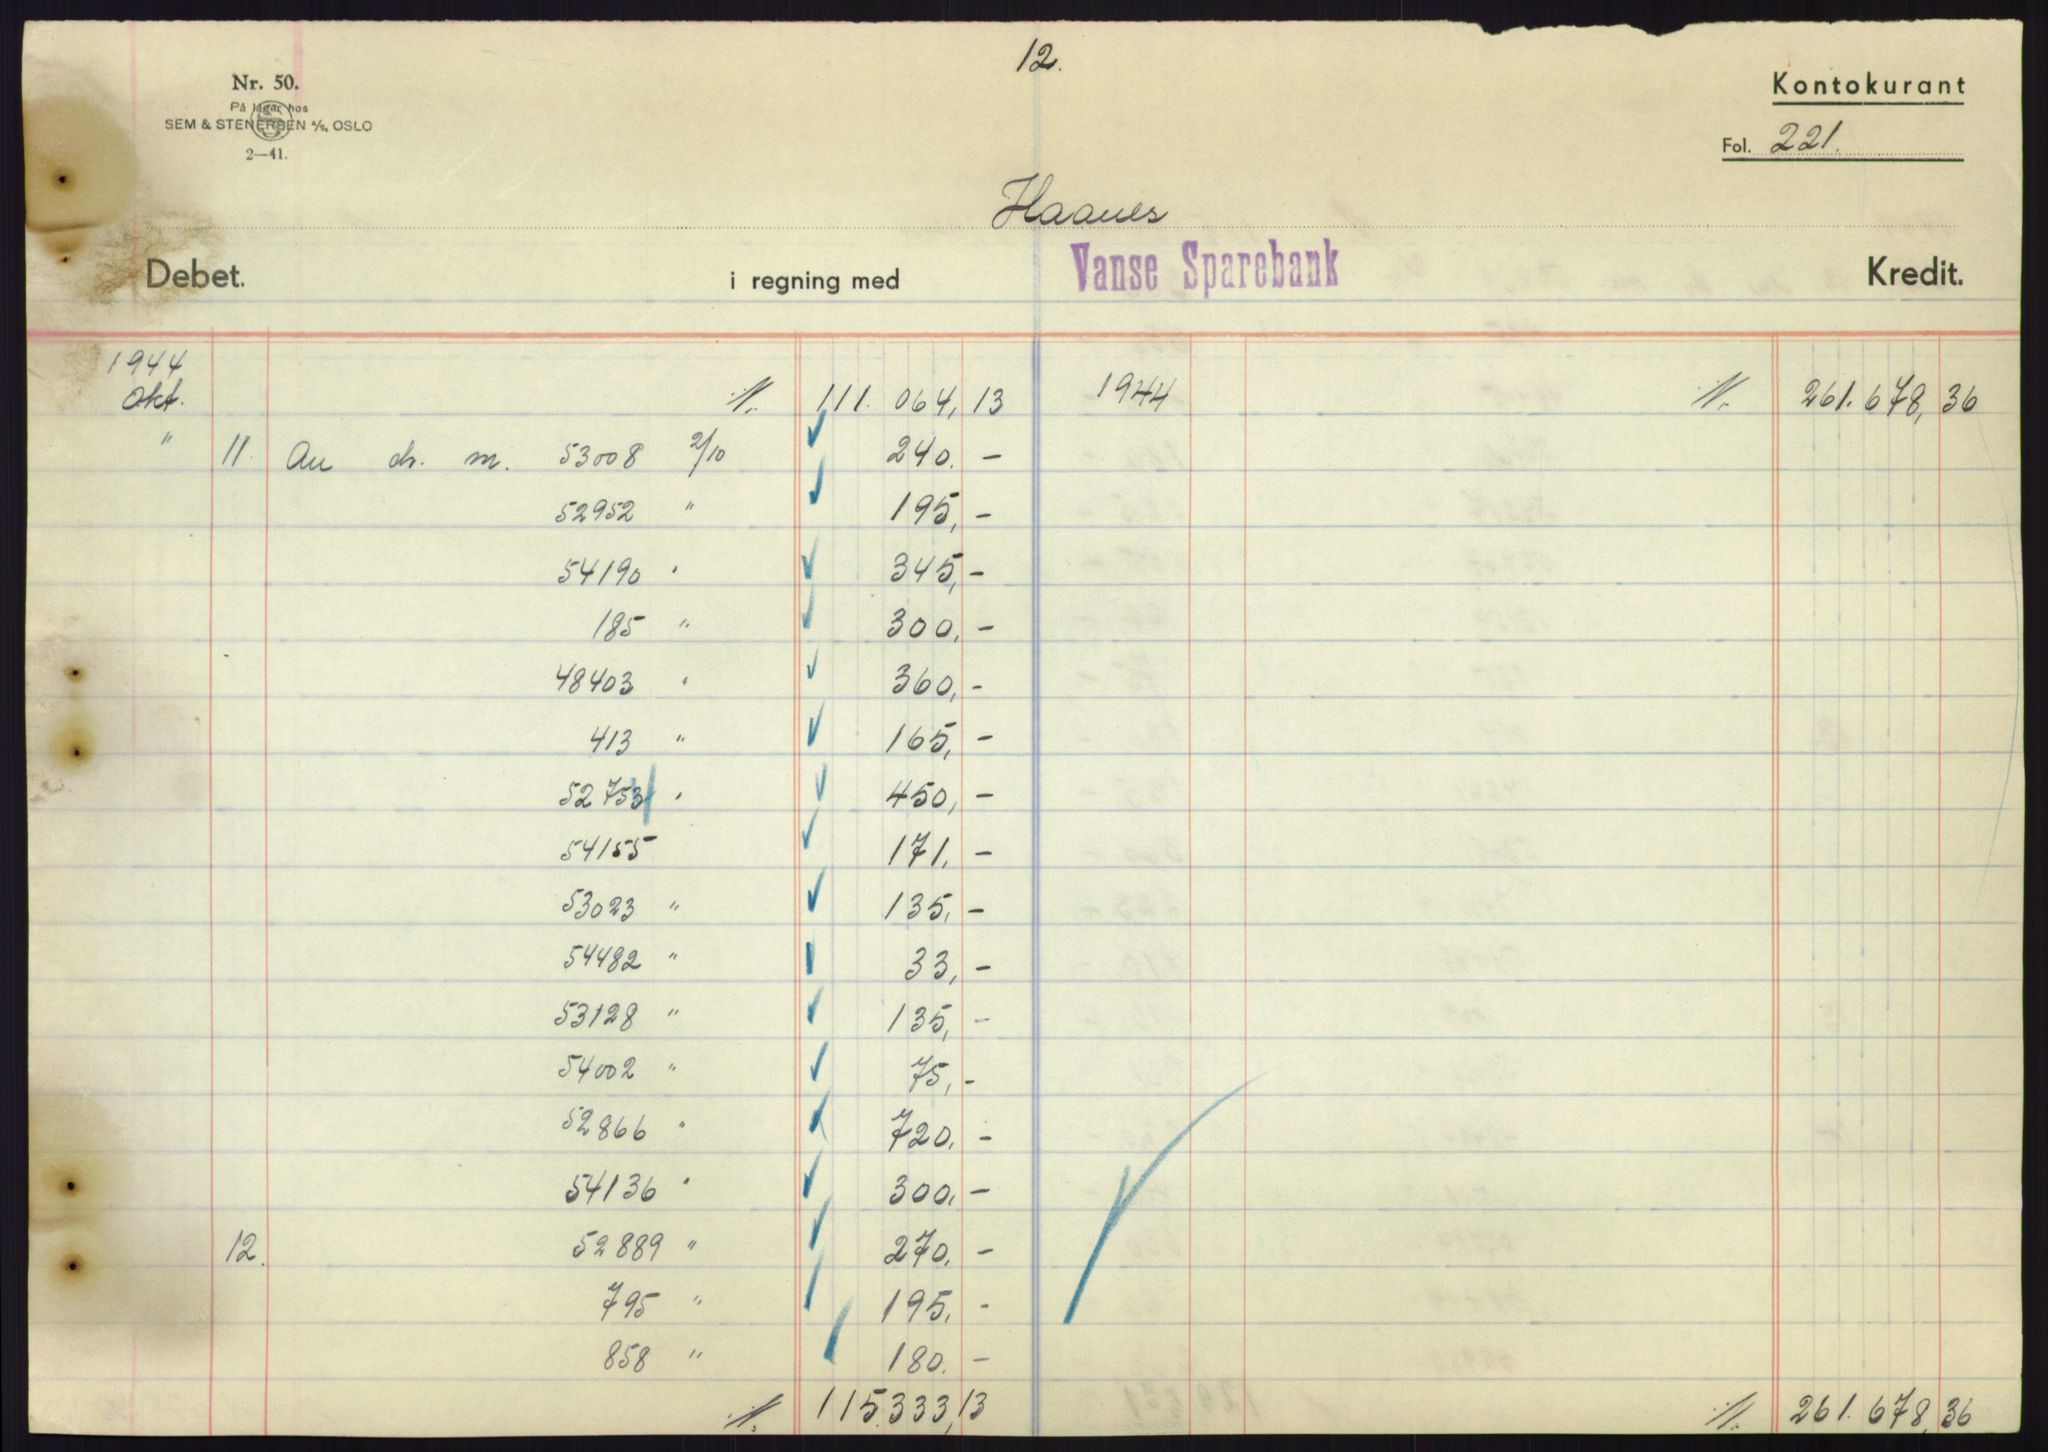 12.
Nr. 50.
På lager hos
SEM & STENERSEN A/S, OSLO
2—41.
Kontokurant
Fol. 221.
Haanes
Debet. i regning med Vanse Sparebank Kredit.
1944 1944
Okt. 111.064,13 261.678,36
" 11. An ch. m. 53008 2/10 240. –
52952 " 195, –
54190 " 345, –
185 " 300, –
48403 " 360, –
413 " 165, –
52753 " 450, –
54155 171. –
53023 " 135, –
54482 " 33, –
53128 " 135, –
54002 " 75, –
52866 " 720. –
54136 " 300. –
12. 52889 " 270. –
795 " 195. –
858 " 180. –
115.333,13 261.678,36